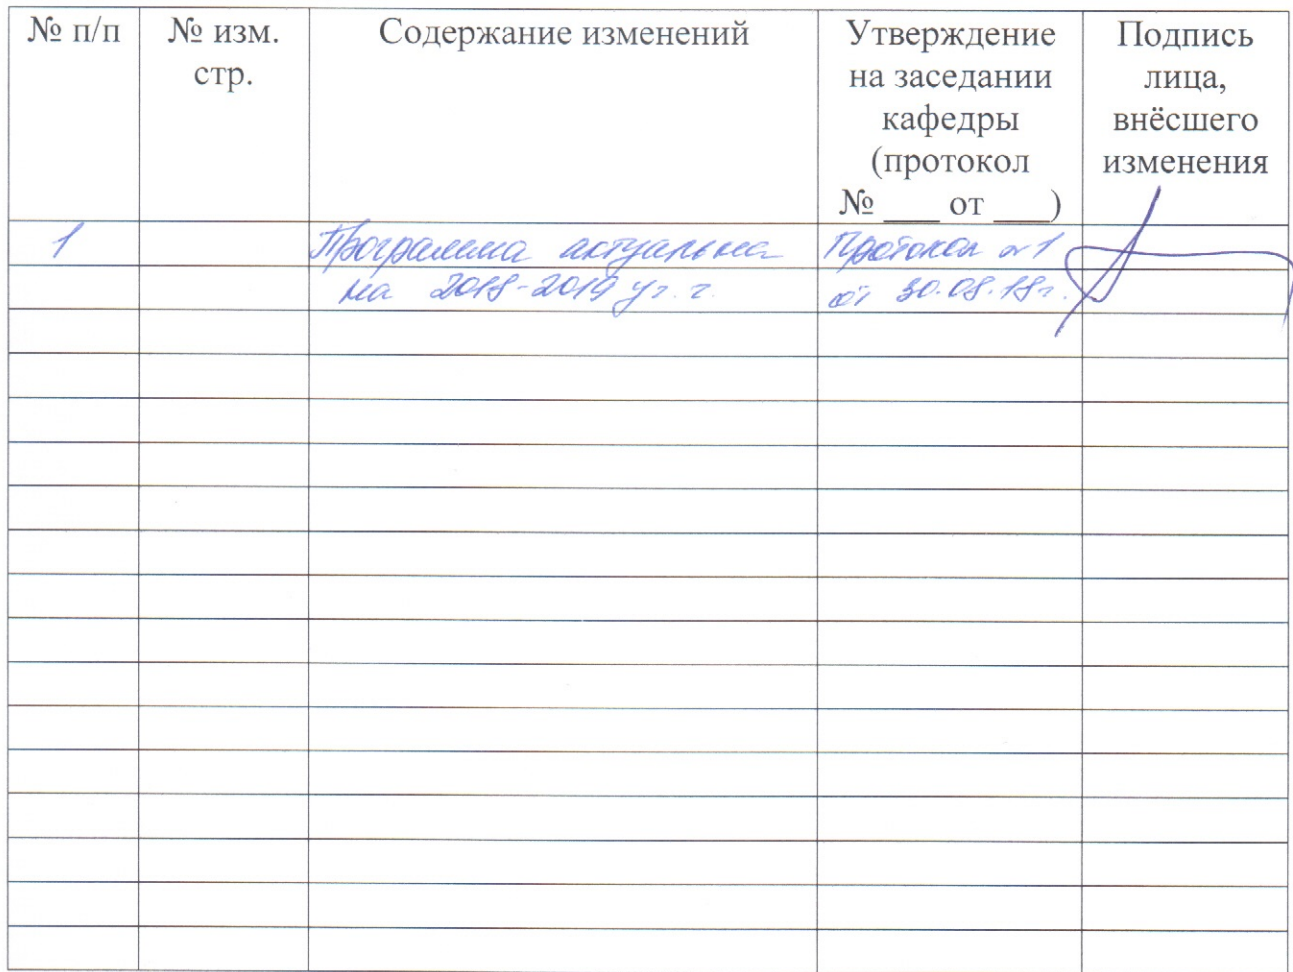 № п/п
№ изм.
стр.
Содержание изменений
Утверждение
на заседании
кафедры
(протокол
№ ___ от ___)
Подпись
лица,
внёсшего
изменения
1
Программа актуальна
на 2018-2019 уч. г.
Протокол №1
от 30.08.18г.